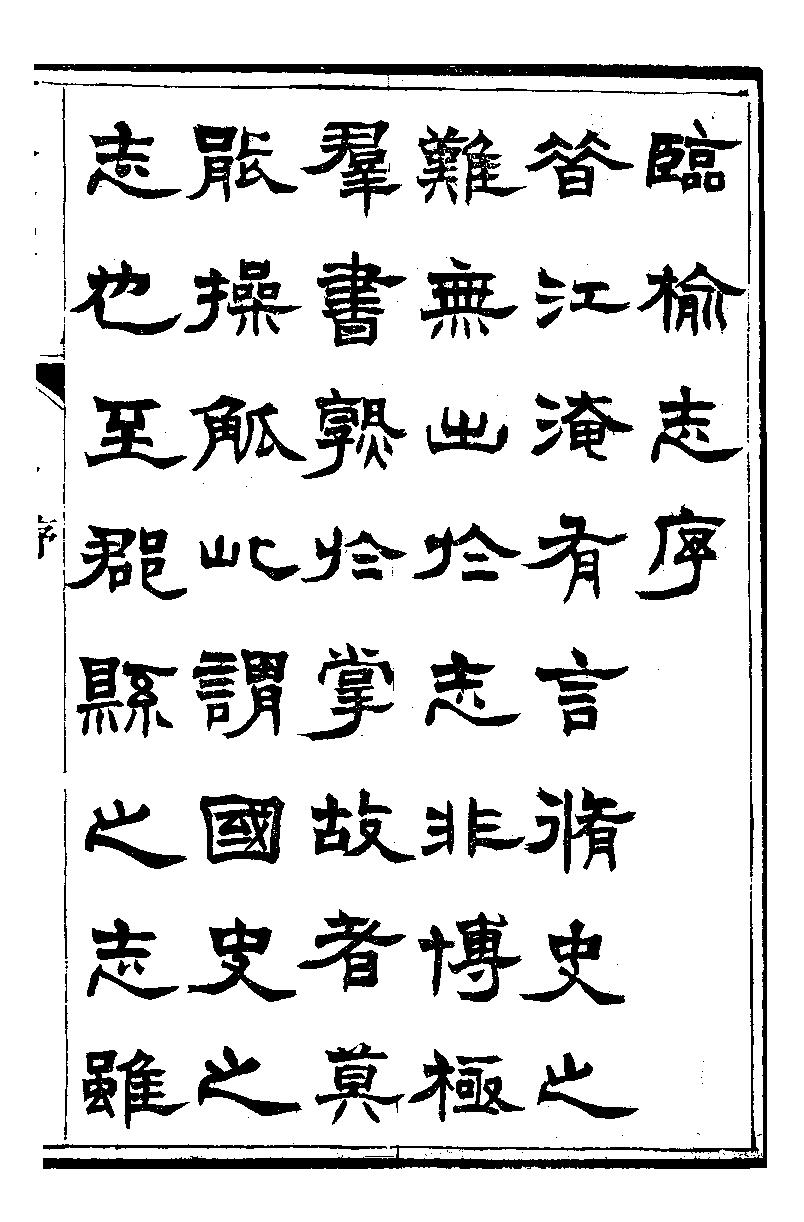 臨榆志序
晉江淹有言脩史之
難無出於志非博極
羣書熟於掌故者莫
能操觚此謂國史之
志也至郡縣之志雖
序